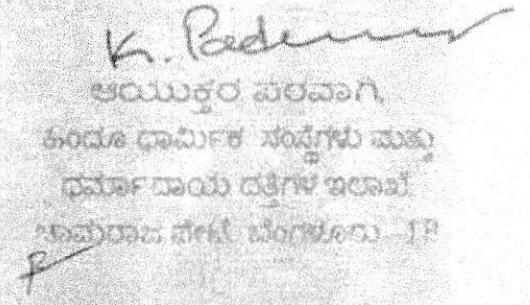 K. Padm
ಆಯುಕ್ತರ ಪರವಾಗಿ,
ಹಿಂದೂ ಧಾರ್ಮಿಕ ಸಂಸ್ಥೆಗಳು ಮತ್ತು
ಧರ್ಮಾದಾಯ ದತ್ತಿಗಳ ಇಲಾಖೆ,
ಚಾಮರಾಜ ಪೇಟೆ, ಬೆಂಗಳೂರು - 18